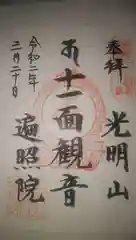 奉拝
光明山
十一面観音
遍照院
令和二年
二月二十日